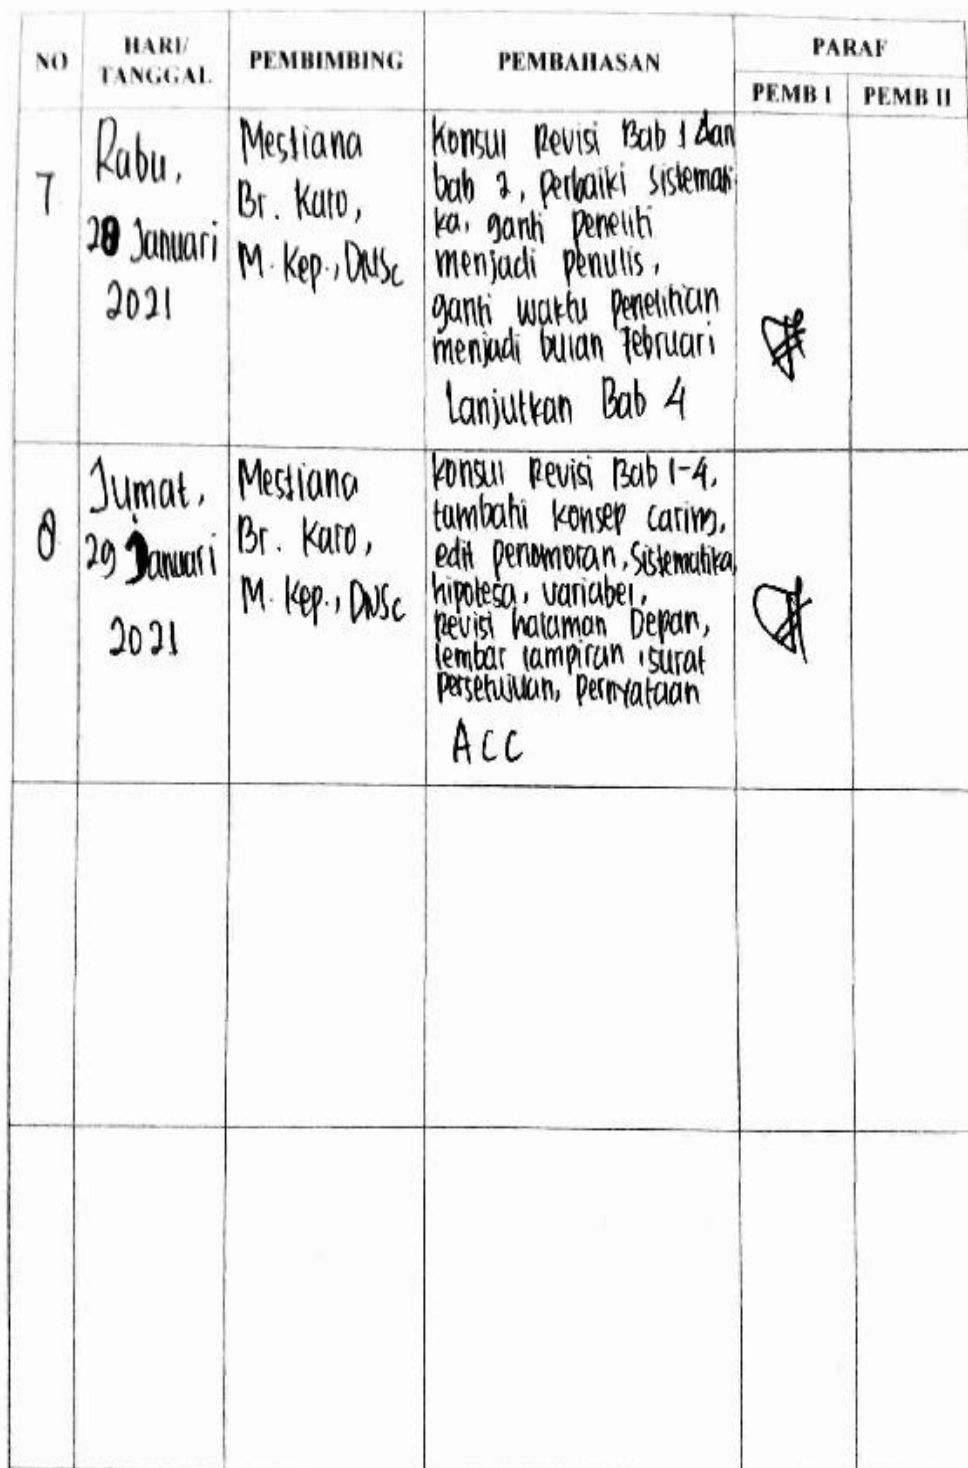 NO
HARI/
TANGGAL
PEMBIMBING
PEMBAHASAN
PARAF
PEMB I
PEMB II
7
Rabu,
28 Januari
2021
Mestiana
Br. Karo,
M. Kep., DNSc
Konsul Revisi Bab 1 dan
bab 2, perbaiki sistemati
ka, ganti peneliti
menjadi penulis,
ganti waktu penelitian
menjadi bulan Februari
Lanjutkan Bab 4
8
Jumat,
29 Januari
2021
Mestiana
Br. Karo,
M. Kep., DNSc
Konsul Revisi Bab 1-4,
tambahi konsep caring,
edit penomoran, Sistematika,
hipotesa, variabel,
Revisi halaman Depan,
lembar lampiran, surat
Persetujuan, Pernyataan
ACC